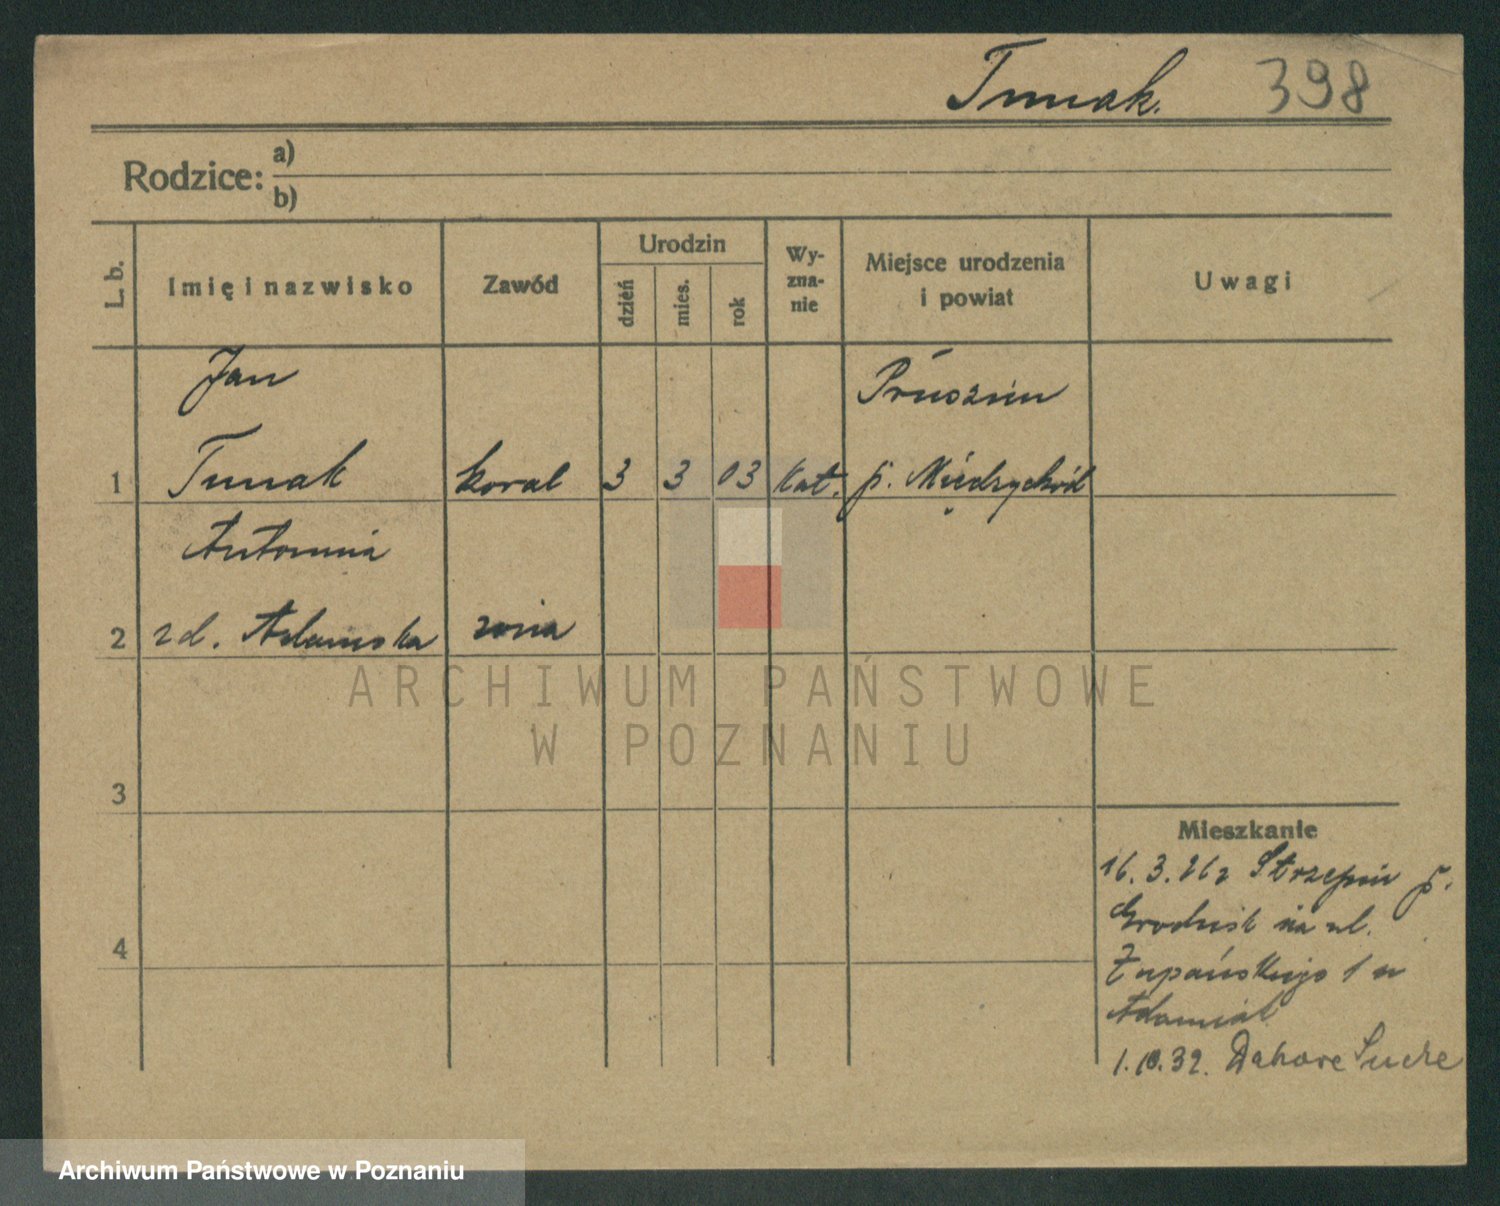 Tumak. 398
Rodzice: a)
b)
L. b. Imię i nazwisko Zawód Urodzin dzień mies. rok Wy-zna-nie Miejsce urodzenia i powiat Uwagi
Jan Pruszim
1 Tumak kowal 3 3 03 kat. p. Międzychód
Antonina
2 zd. Adamska żona
3
4
Mieszkanie
16. 3. 26 z Strzępin p.
Grodzisk na ul.
Żupańskiego 1 u
Adamiak
1. 10. 32. Dakowe Suche
ARCHIWUM PAŃSTWOWE
W POZNANIU
Archiwum Państwowe w Poznaniu